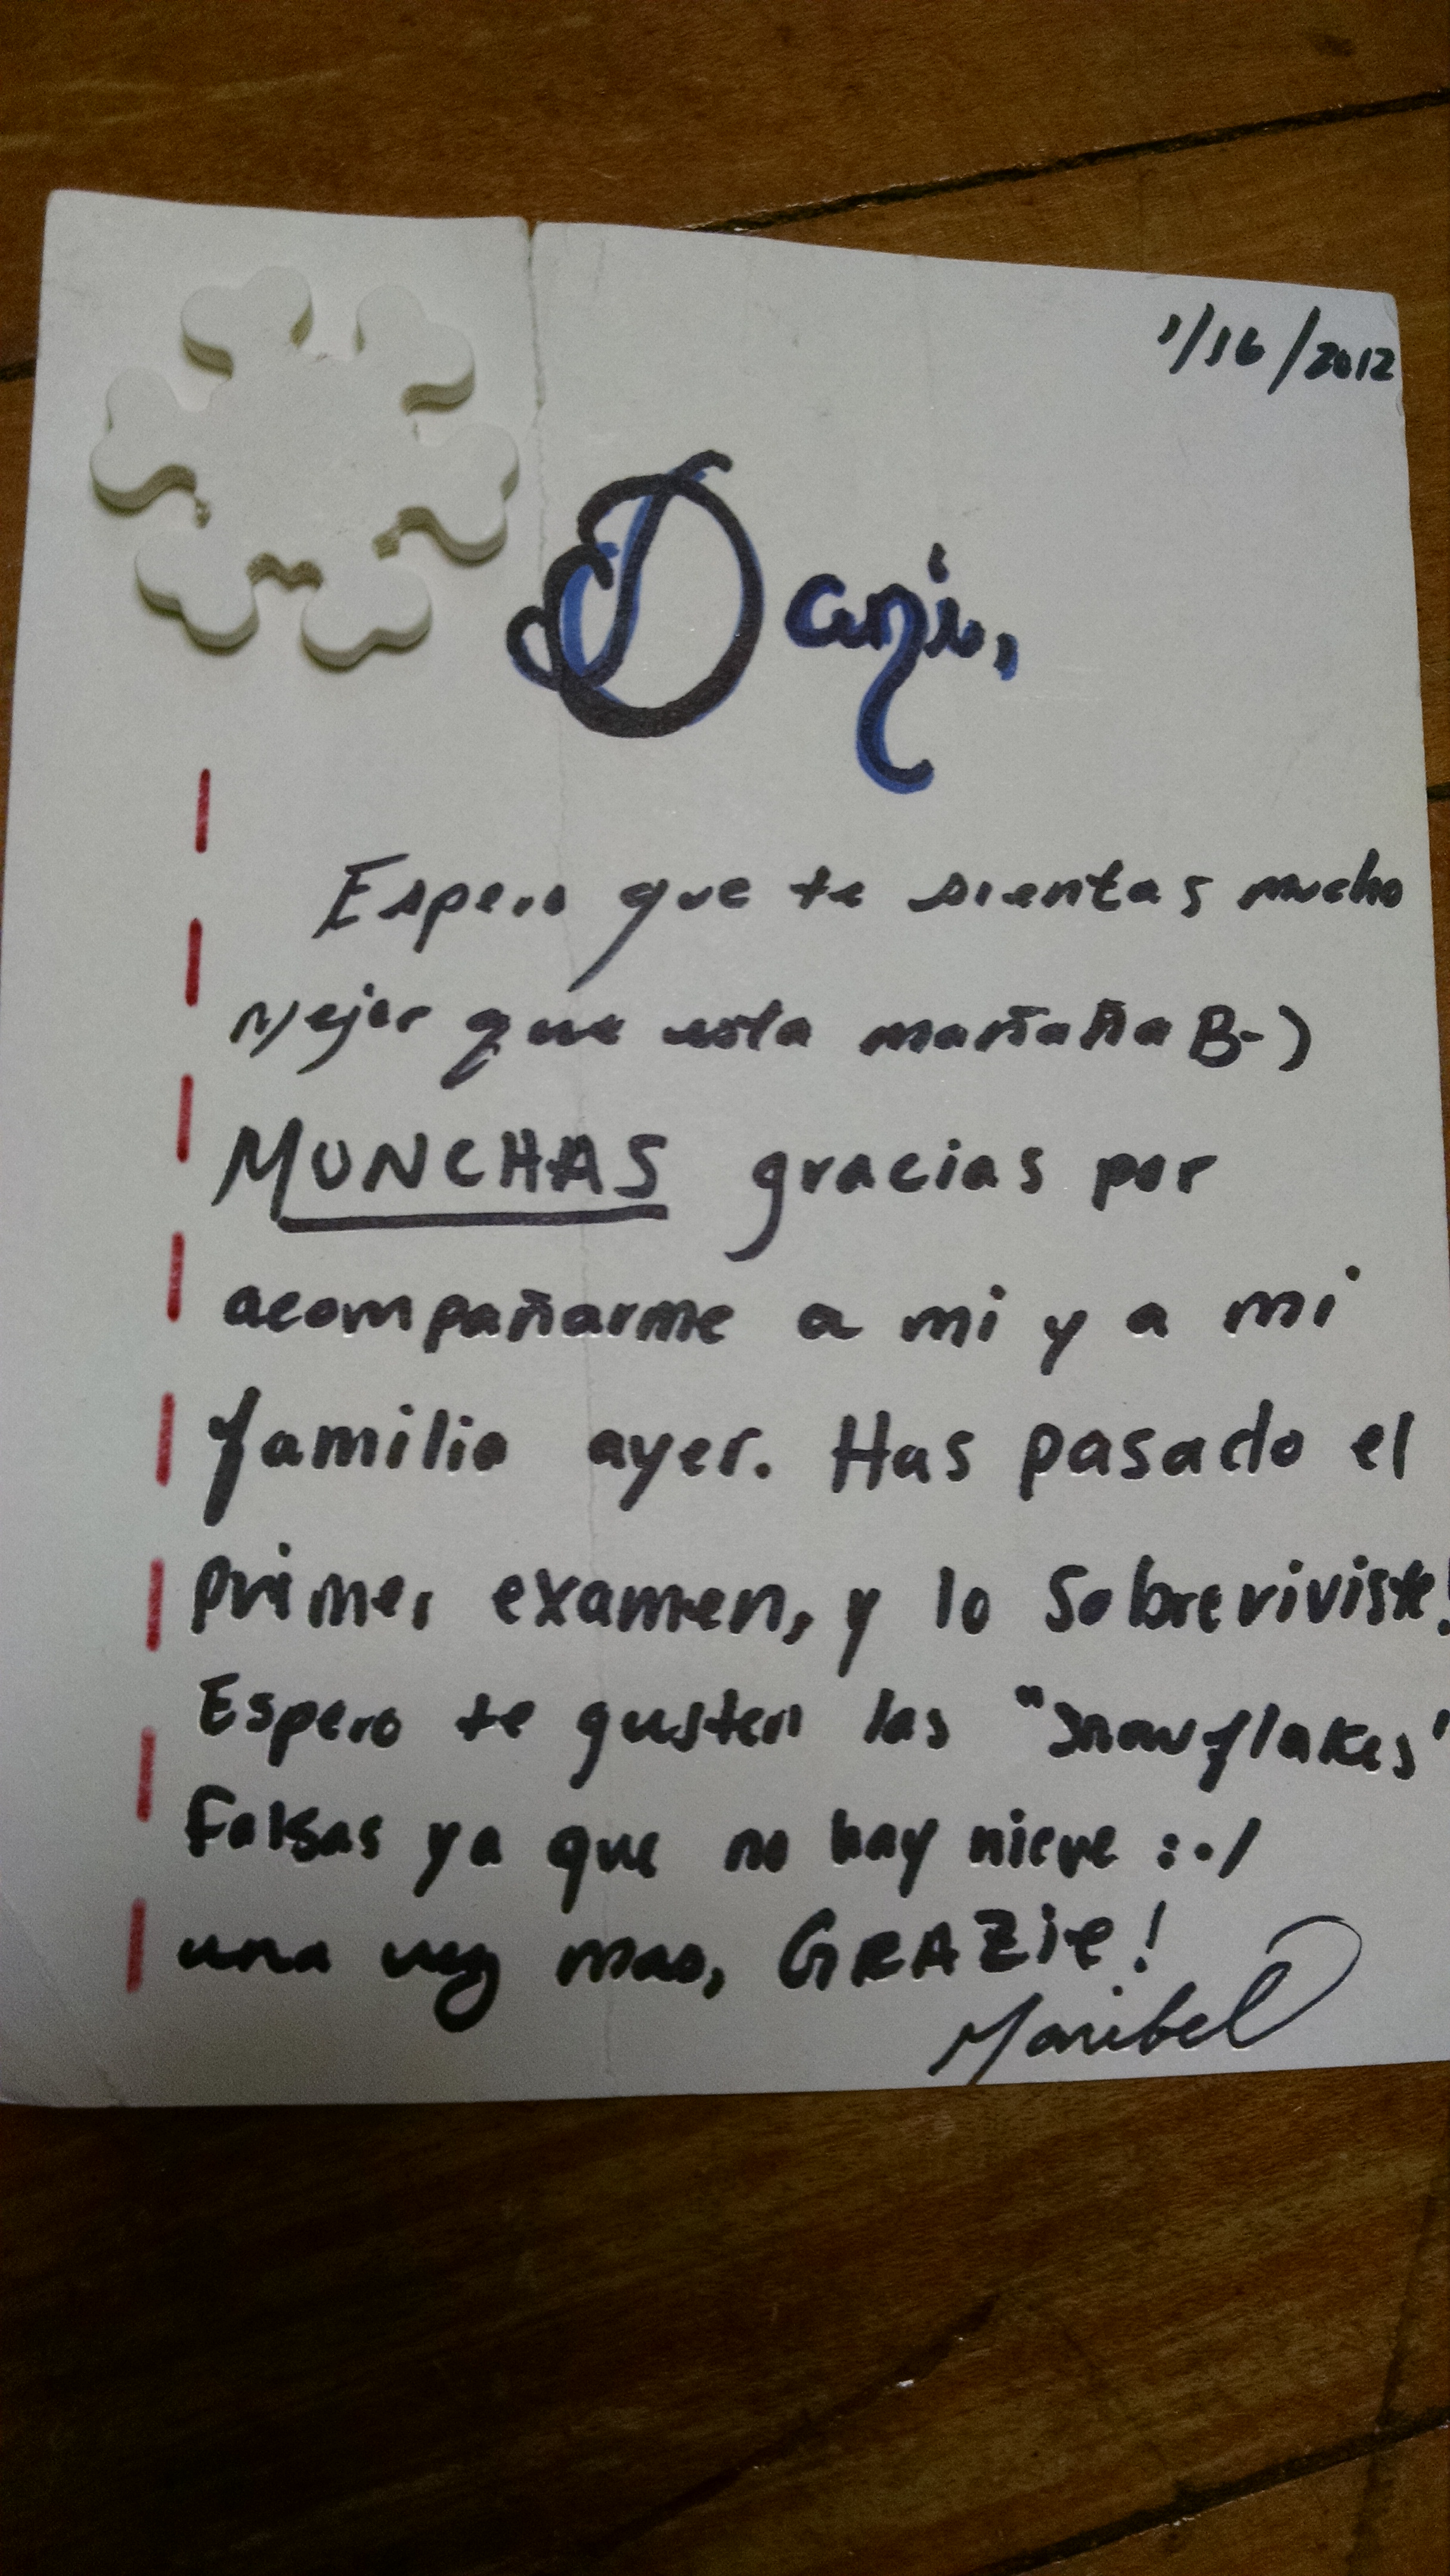 1/16/2012
Dani,
Espero que te sientas mucho
Mejor que esta mañana B-)
MUNCHAS gracias por
acompañarme a mi y a mi
familia ayer. Has pasado el
primer examen, y lo sobreviviste!
Espero te gusten las "snowflakes"
Falsas ya que no hay nieve :-/
una vez mas, GRAZie!
Maribel